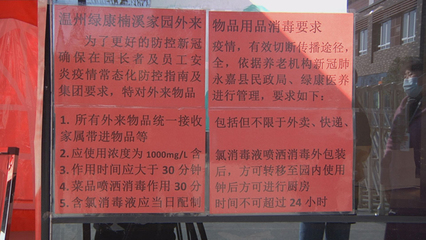 温州绿康楠溪家园外来物品用品消毒要求
为了更好的防控新冠疫情，有效切断传播途径，
确保在园长者及员工安全，依据养老机构新冠肺
炎疫情常态化防控指南及永嘉县民政局、绿康医养
集团要求，特对外来物品进行管理，要求如下：
1. 所有外来物品统一接收包括但不限于外卖、快递、
家属带进物品等
2. 应使用浓度为 1000mg/L 含氯消毒液喷洒消毒外包装
3. 作用时间应大于 30 分钟后，方可转移至园内使用
4. 菜品喷洒消毒作用 30 分钟后方可进行厨房
5. 含氯消毒液应当日配制时间不可超过 24 小时